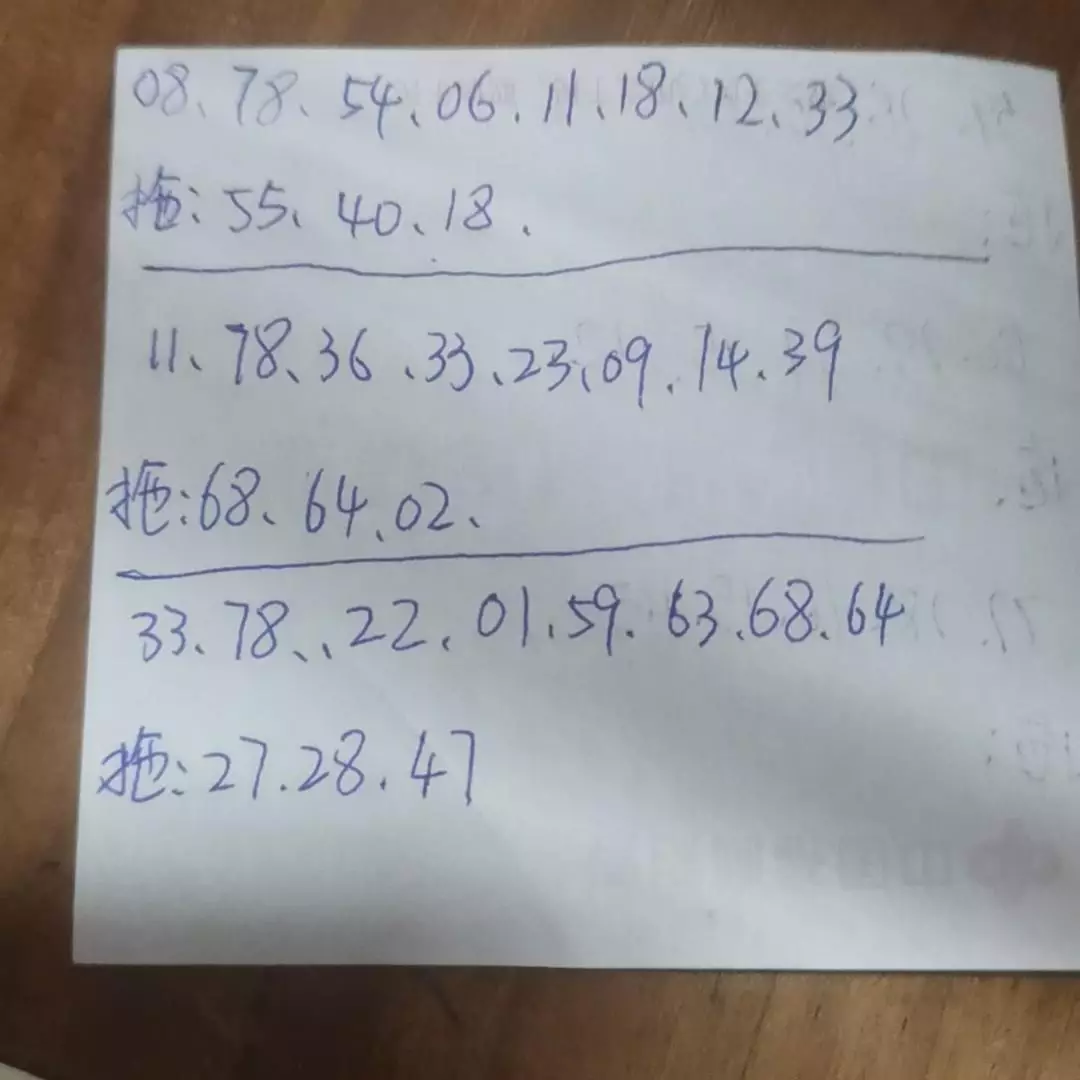 08、78、54、06、11、18、12、33
拖:55、40、18.
11、78、36、33、23、09、14、39
拖:68、64、02、
33、78、、22、01、59、63、68、64
拖:27.28.47